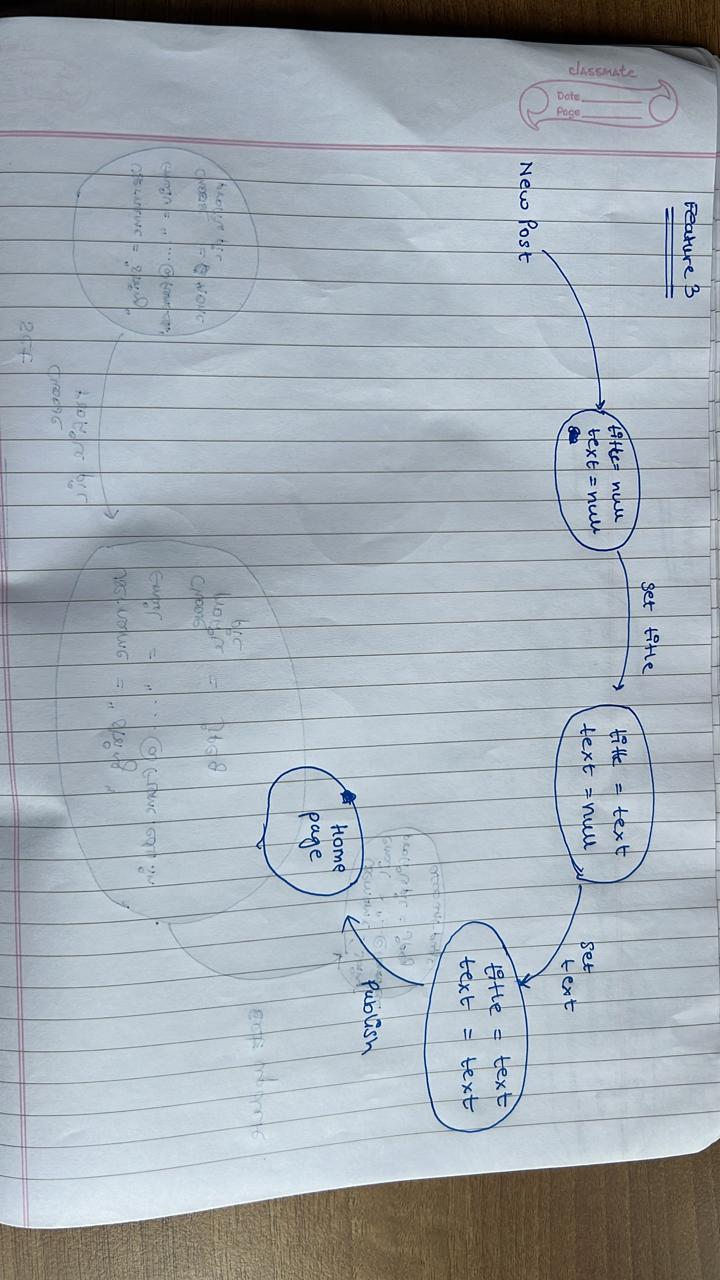 classmate
Date
Page
Feature 3
New Post
title = null
text = null
set title
title = text
text = null
set
text
title = text
text = text
Publish
Home
page